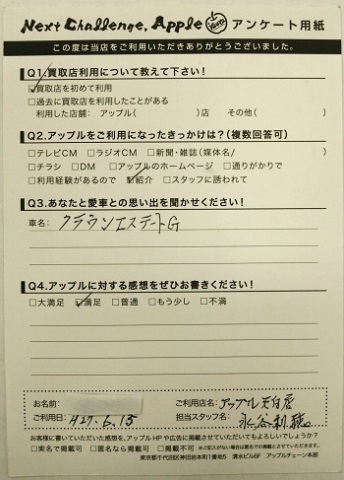 Next Challenge, Apple アンケート用紙
この度は当店をご利用いただきありがとうございました。
Q1.買取店利用について教えて下さい!
□買取店を初めて利用
□過去に買取店を利用したことがある
利用した店舗: アップル( )店 その他( )
Q2.アップルをご利用になったきっかけは?(複数回答可)
□テレビCM □ラジオCM □新聞・雑誌(媒体名/ )
□チラシ □DM □アップルのホームページ □通りがかりで
□利用経験があるので □紹介 □スタッフに誘われて
Q3.あなたと愛車との思い出を聞かせください!
車名: クラウンエステートG
Q4.アップルに対する感想をぜひお書きください!
□大満足 □満足 □普通 □もう少し □不満
お名前: ご利用店名: アップル天白店
ご利用日: H27.6.15 担当スタッフ名:
お客様に書いていただいた感想を、アップルHPや広告に掲載させていただいてもよろしいでしょうか?
□実名で掲載可 □匿名なら掲載可 □不可 ※ご記入がない場合は匿名での掲載とさせていただきます。
東京都千代田区神田岩本町1番地5 清水ビル6F アップルチェーン本部